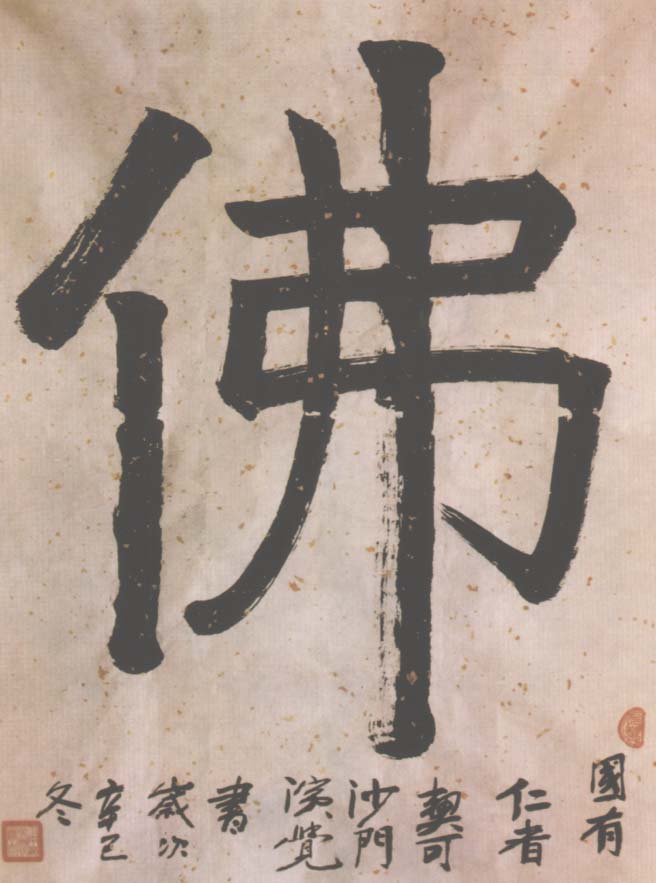 佛
國有
仁者
契可
沙門
演覺
書
歲次
辛巳
冬